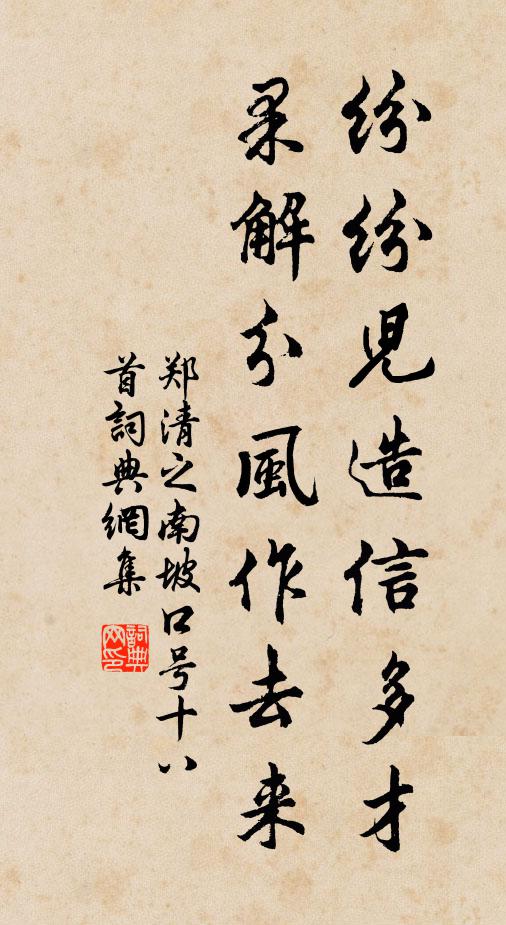 纷纷児造信多才
果解分風作去来
郑清之南坡口号十八
首詞典網集
詞典網印